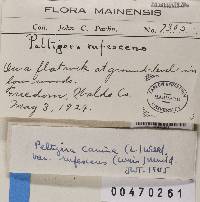 FLORA MAINENSIS
Con. John C. Parlin. No. 7305
Peltigera rufescens
On a flat rock at ground-level in
low woods.
Freedom, Waldo Co.
May 3, 1924.
Peltigera canina (L.) Willd.
var. rufescens (Weis) Mudd
00470261